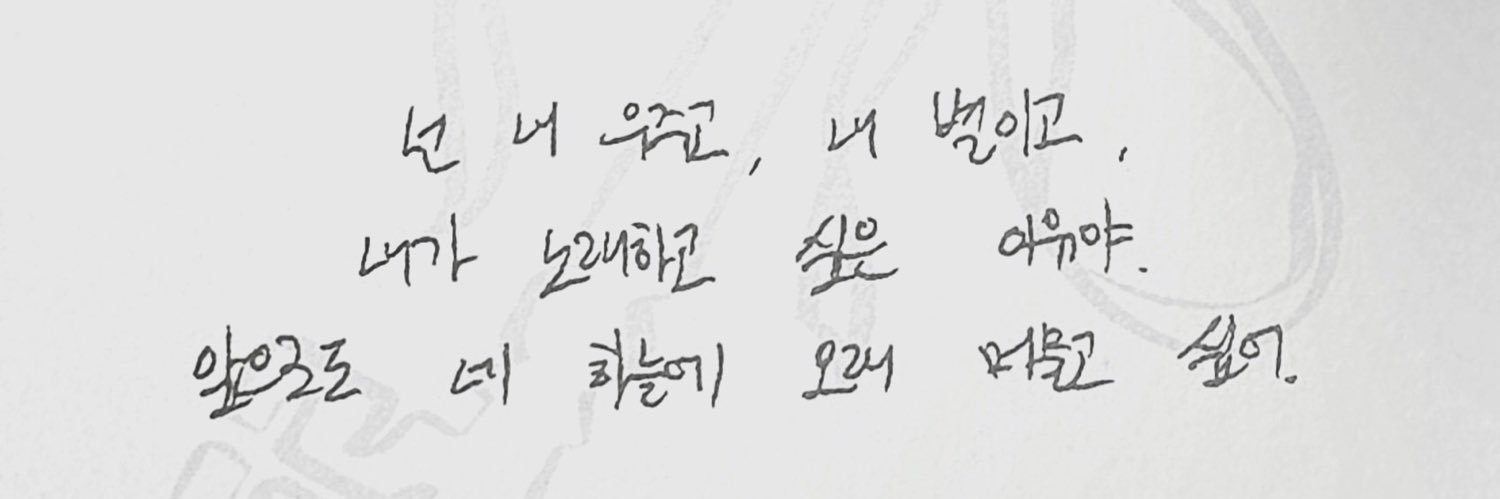 넌 내 우주고, 내 별이고,
내가 노래하고 싶은 이유야.
앞으로도 네 하늘에 오래 머물고 싶어.